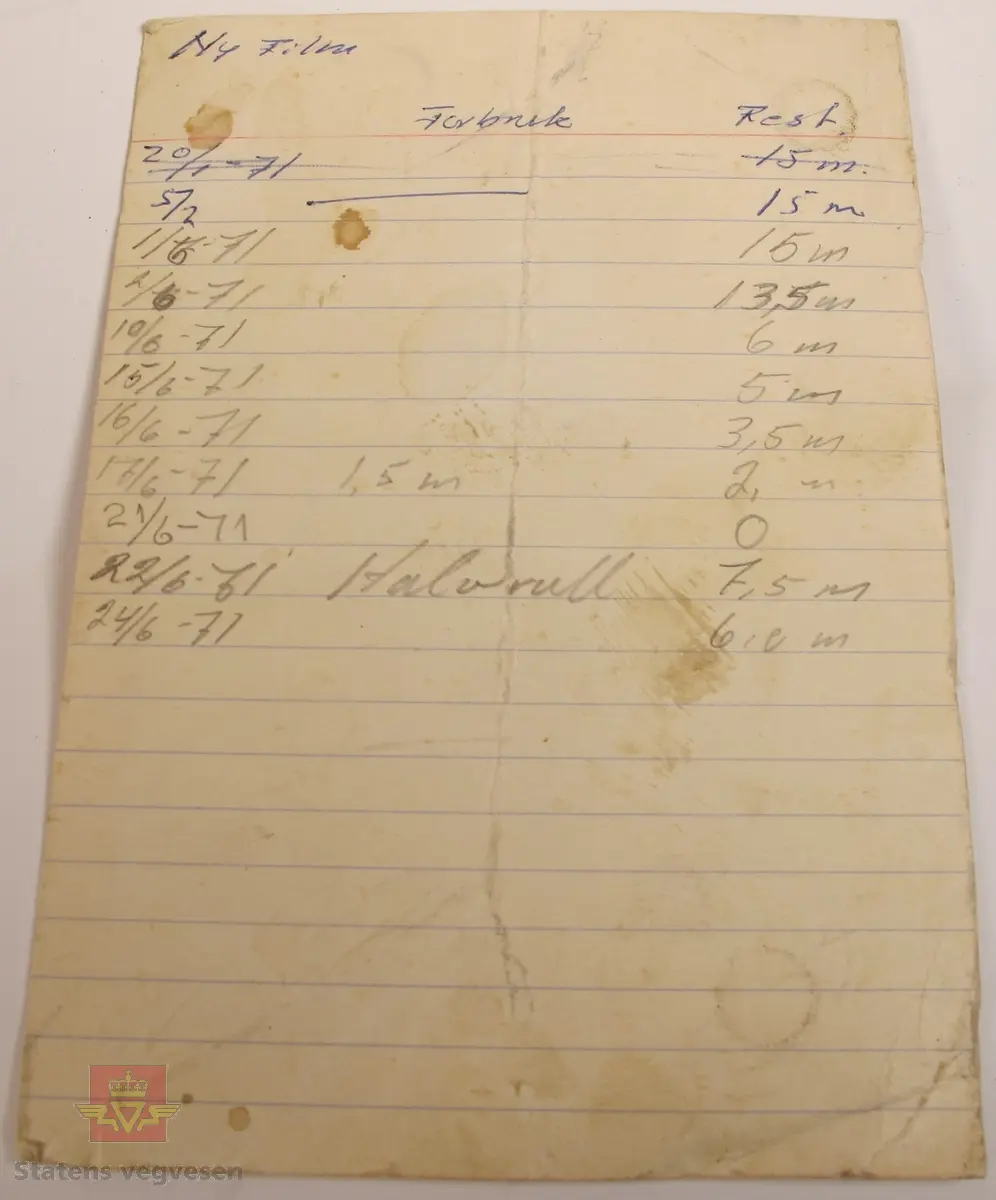 Ny Film
Forbruk Rest.
20/1-71 15 m.
5/2 15 m
1/6-71 15 m
2/6-71 13,5 m
10/6-71 6 m
15/6-71 5 m
16/6-71 3,5 m
17/6-71 1,5 m 2, m
21/6-71 0
22/6-71 Halv rull 7,5 m
24/6-71 6,0 m
Statens vegvesen